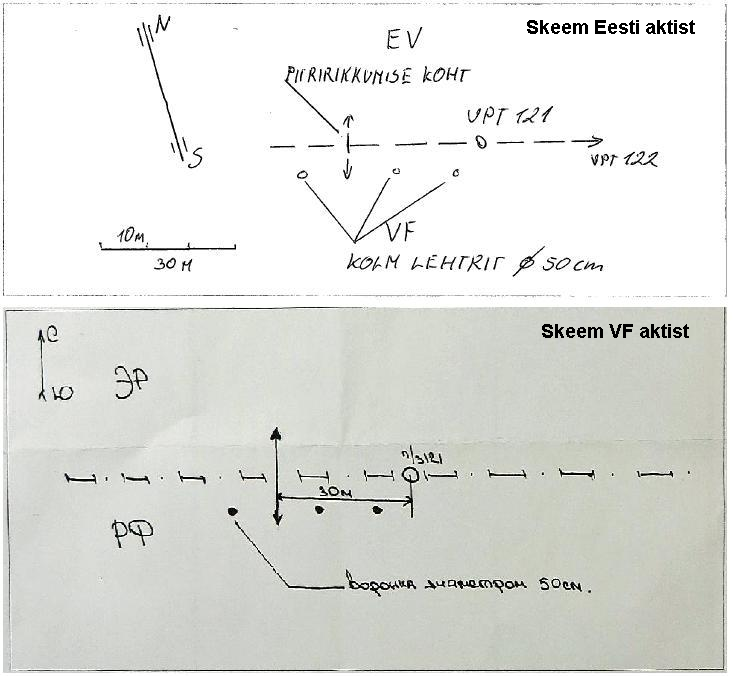 Skeem Eesti aktist
N
EV
PIIRIRIKKUMISE KOHT
VPT 121
VPT 122
S
10M
VF
30 M
KOLM LEHTRIT ϕ 50cm
Skeem VF aktist
С
Ю
ЭР
п/з121
30м
РФ
воронка диаметром 50см.